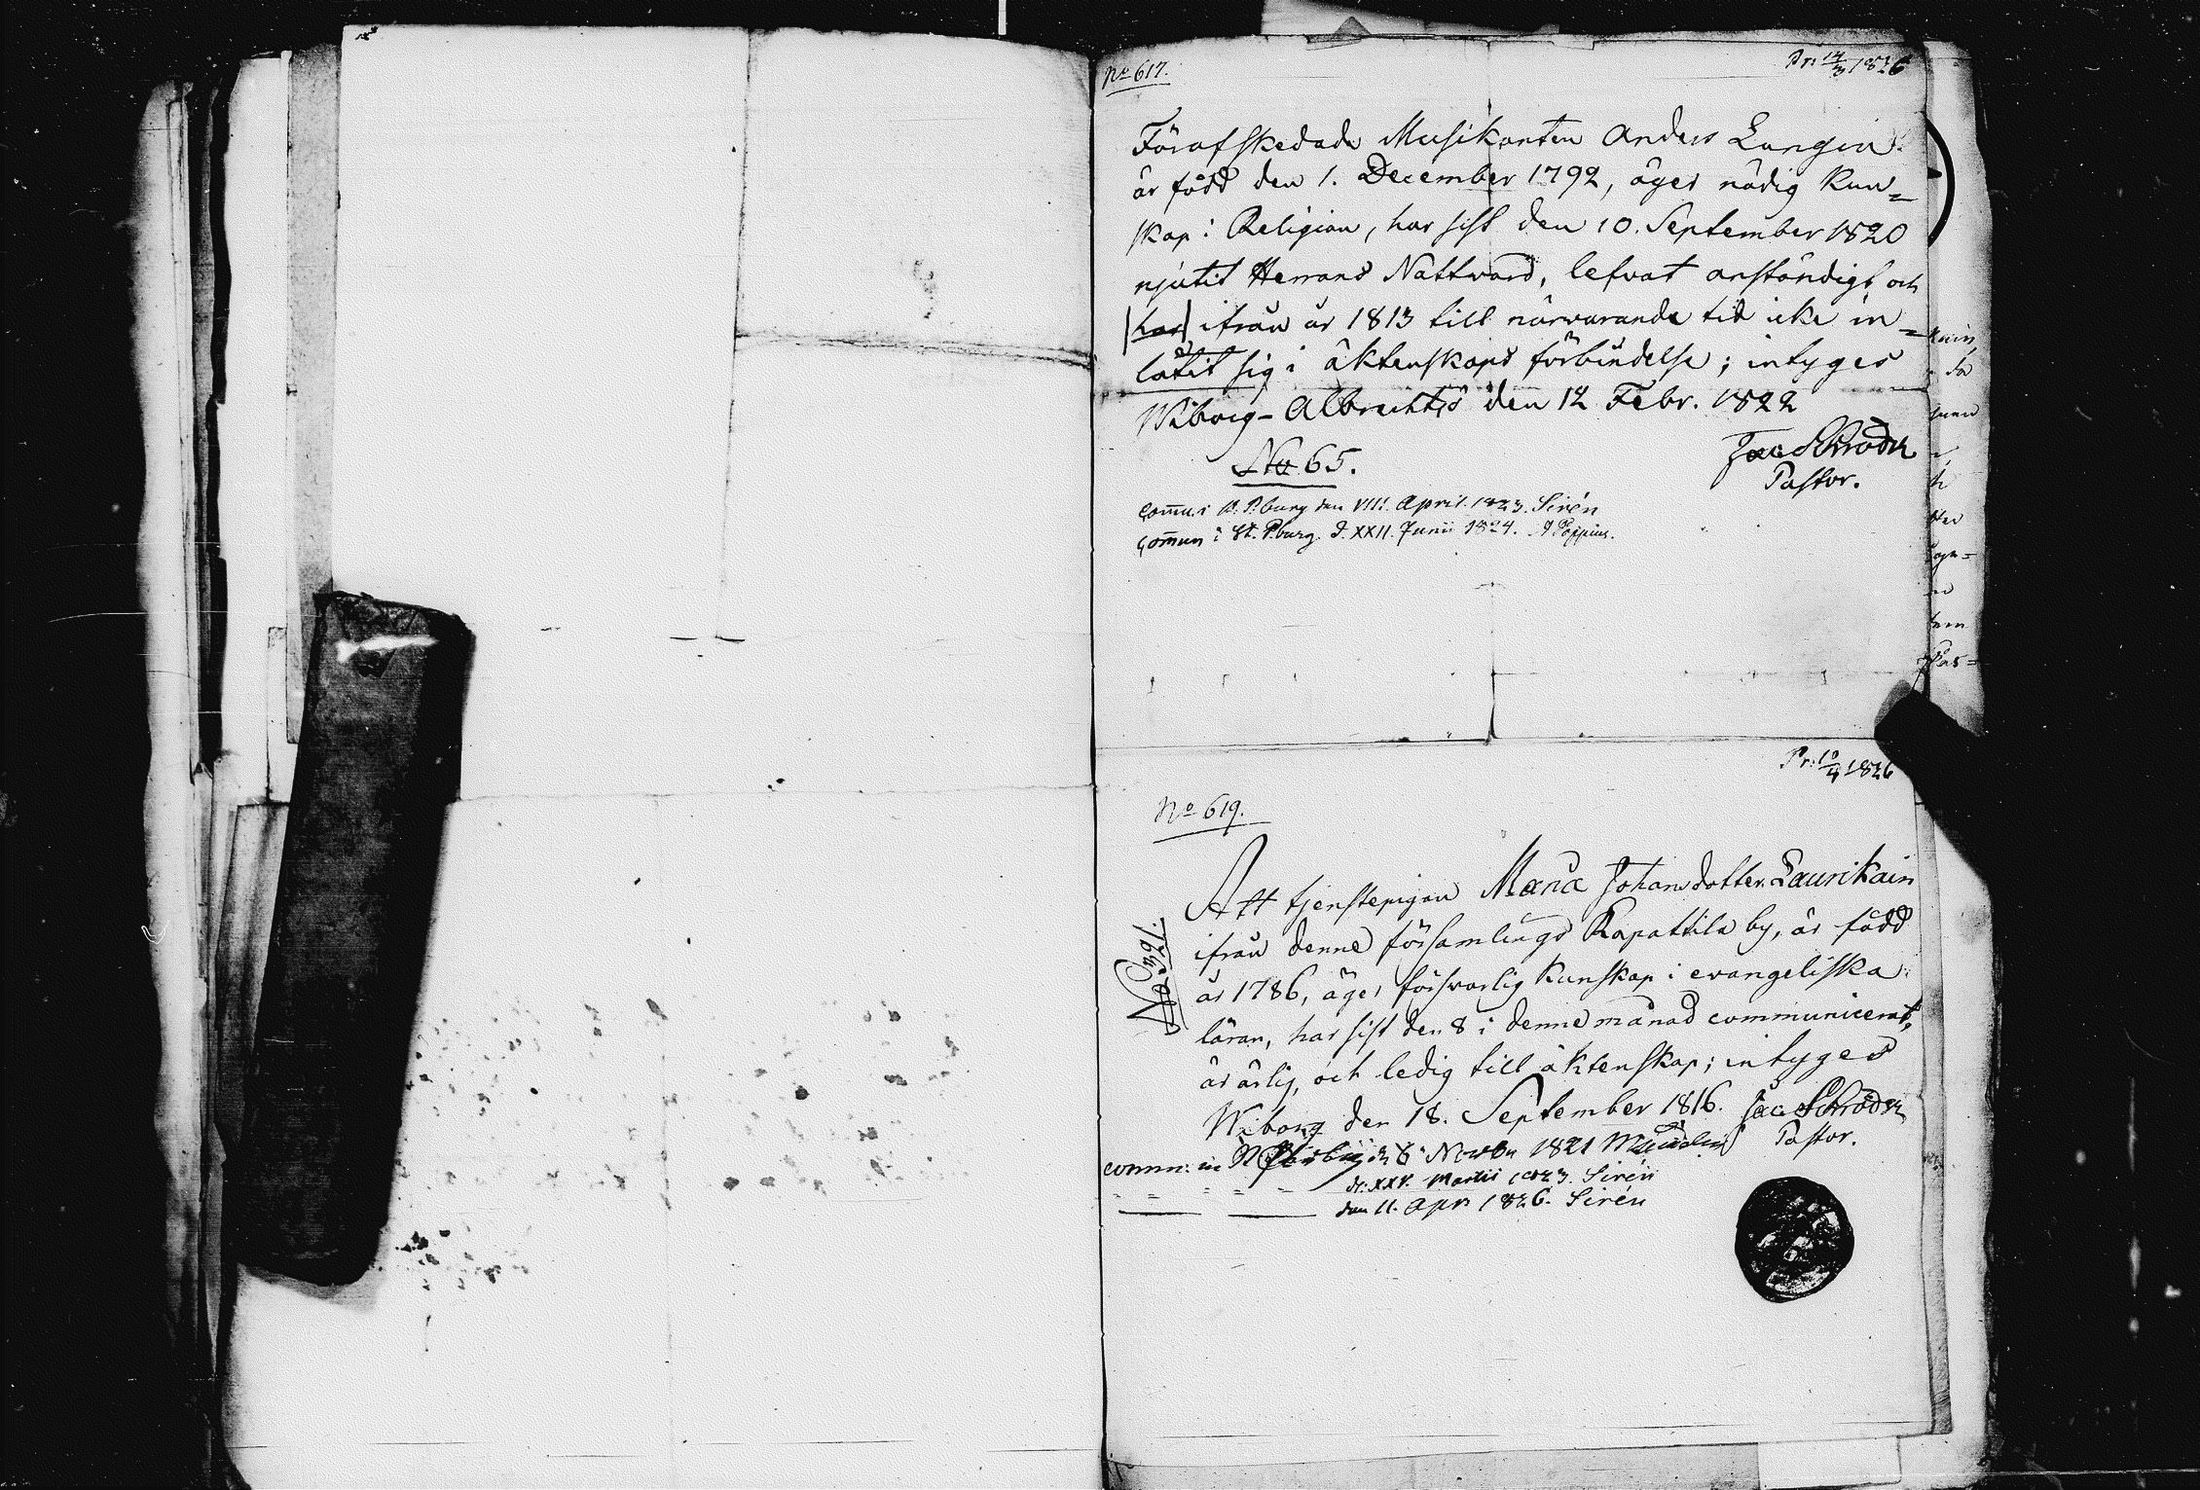 No 617.
Pr: 14/3 1826
Förafskedade Musikanten Anders Langin
är född den 1. December 1792, äger nödig kun=
skap i Religion, har sist den 10. September 1820
njutit Herrans Nattvard, lefvat anständigt och
har ifrån år 1813 till närvarande tid icke in=
låtit sig i äktenskaps förbindelse; intyges
Wiborg – Albrechtsö den 12 Febr. 1822
Jac Schröder
No 65.
Pastor.
Comu. i P.burg den VIII. April. 1823. Sirén
Comun i St. P.burg. d. XXII. Junii 1824. A Poppius.
Pr: 10/4 1826
No 619.
Att tjenstepigan Maria Johansdotter Laurikain
ifrån denne församlings Kapattila by, är född
år 1786, äger försvarlig kunskap i evangeliska
läran, har sist den 8 i denne månad communicerat,
är ärlig, och ledig till äktenskap; intyges
Wiborg den 18. September 1816. Jac Schröder
Pastor.
No 391.
comm: in 8 Novbr 1821
d. XXV. Martii 1823. Sirén
den 11. Apr. 1826. Sirén